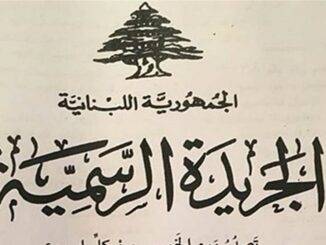 الجمهورية اللبنانية
الجريدة الرسمية